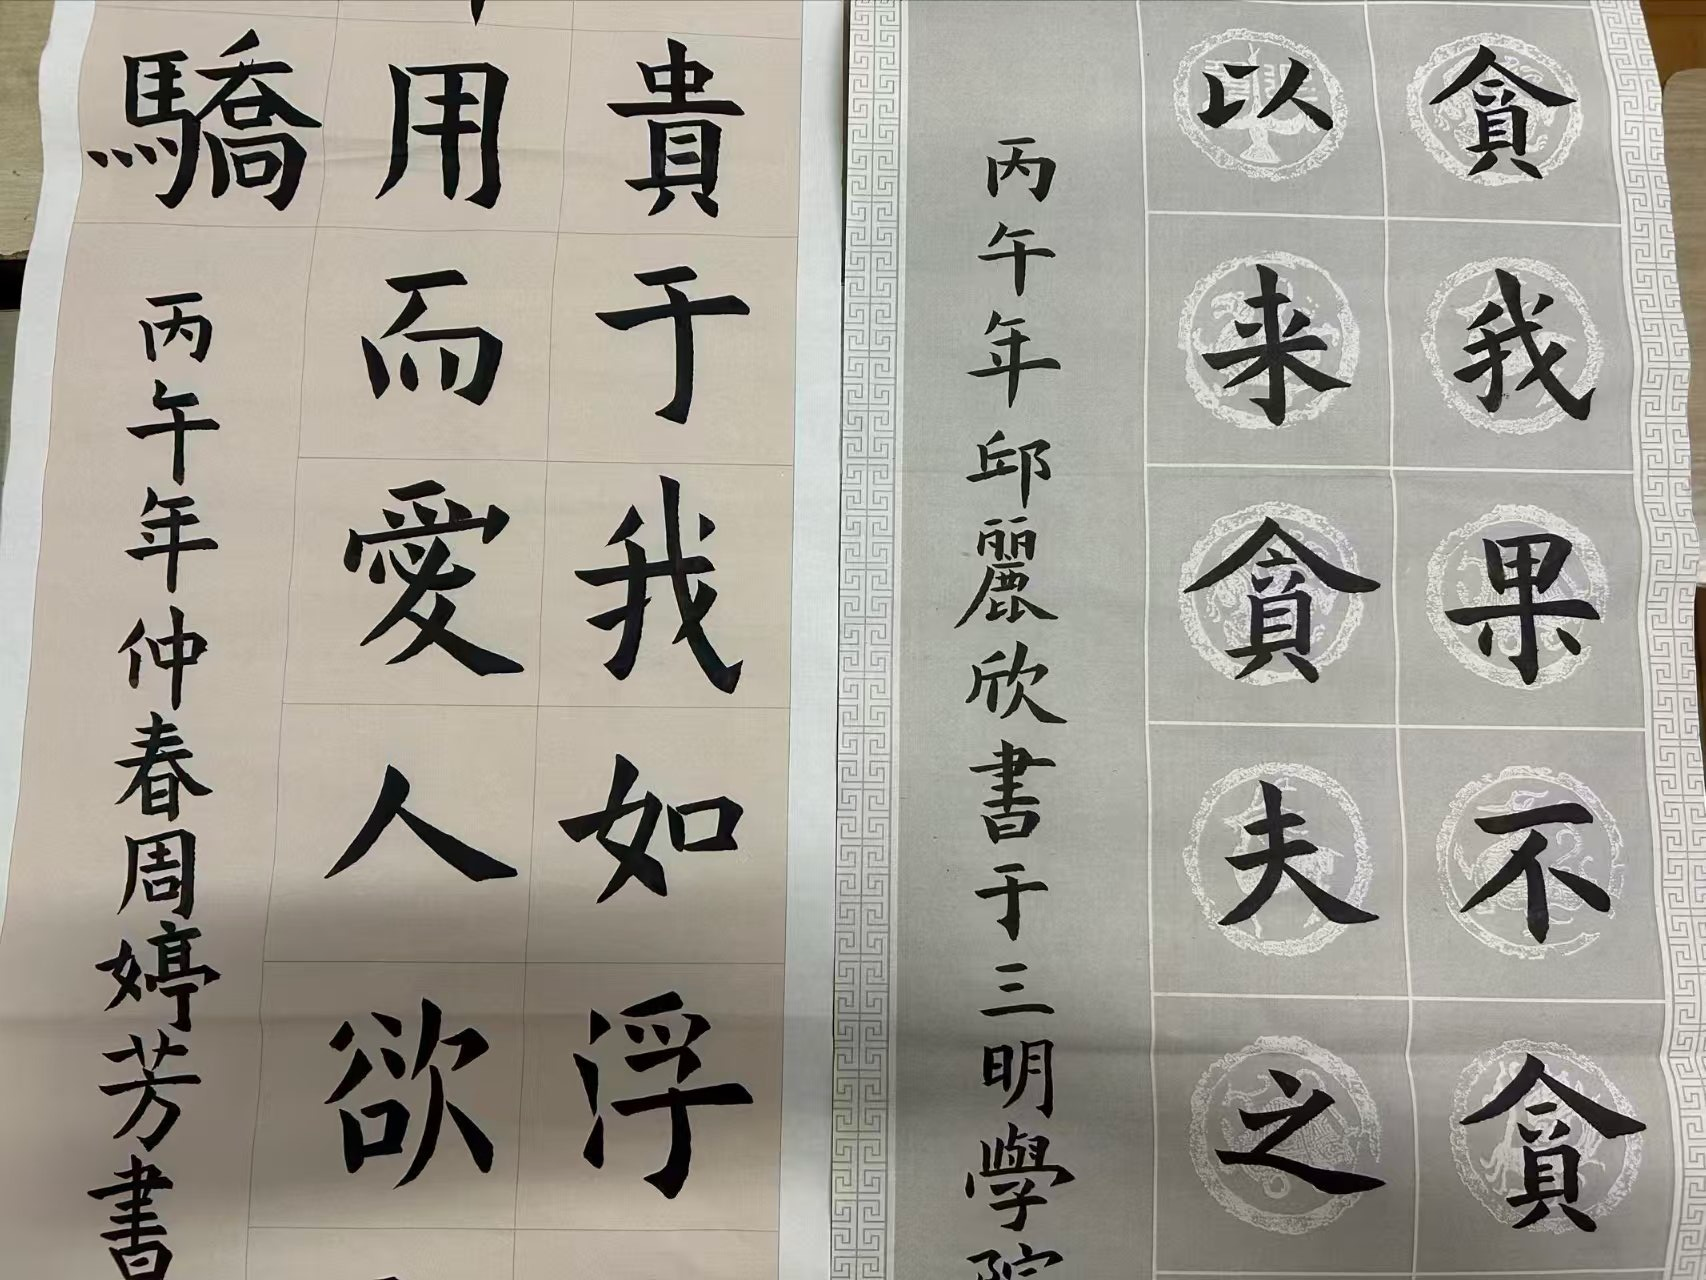 貪我果不貪
以来貪夫之
丙午年邱麗欣書于三明學院
貴于我如浮
用而愛人欲
驕
丙午年仲春周婷芳書